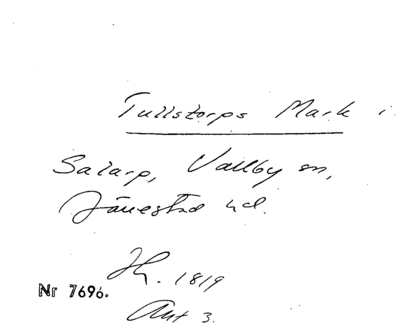 Tullstorps Mark i
Salarp, Vallby sn,
Järrestad hd.
Jh. 1819
Nr 7696.
Akt 3.